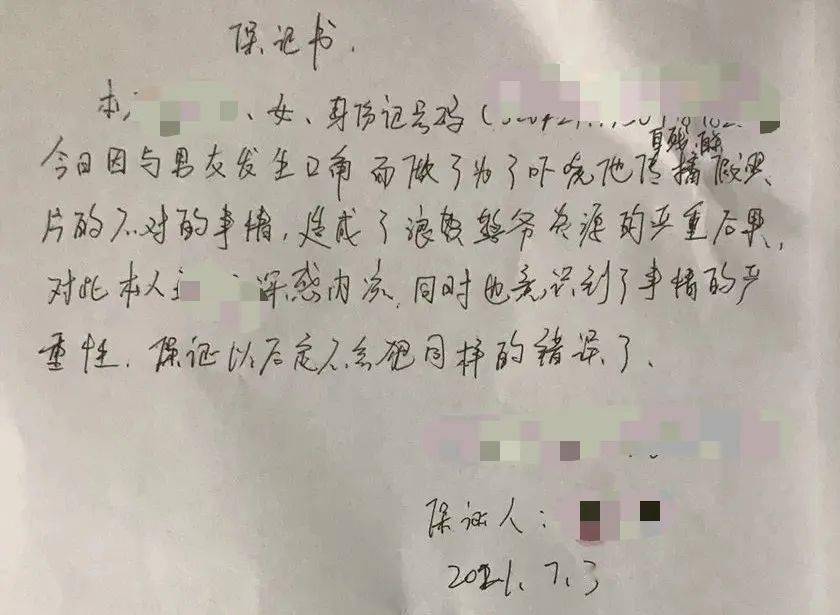 保证书.
本 、女、身份证号码(
自残、自杀
今日因与男友发生口角而做了为了吓唬他传播假照
片的不对的事情,造成了浪费警务资源的严重后果,
对此本人 深感内疚,同时也意识到了事情的严
重性.保证以后定不会犯同样的错误了、
保证人:
2021、7、3